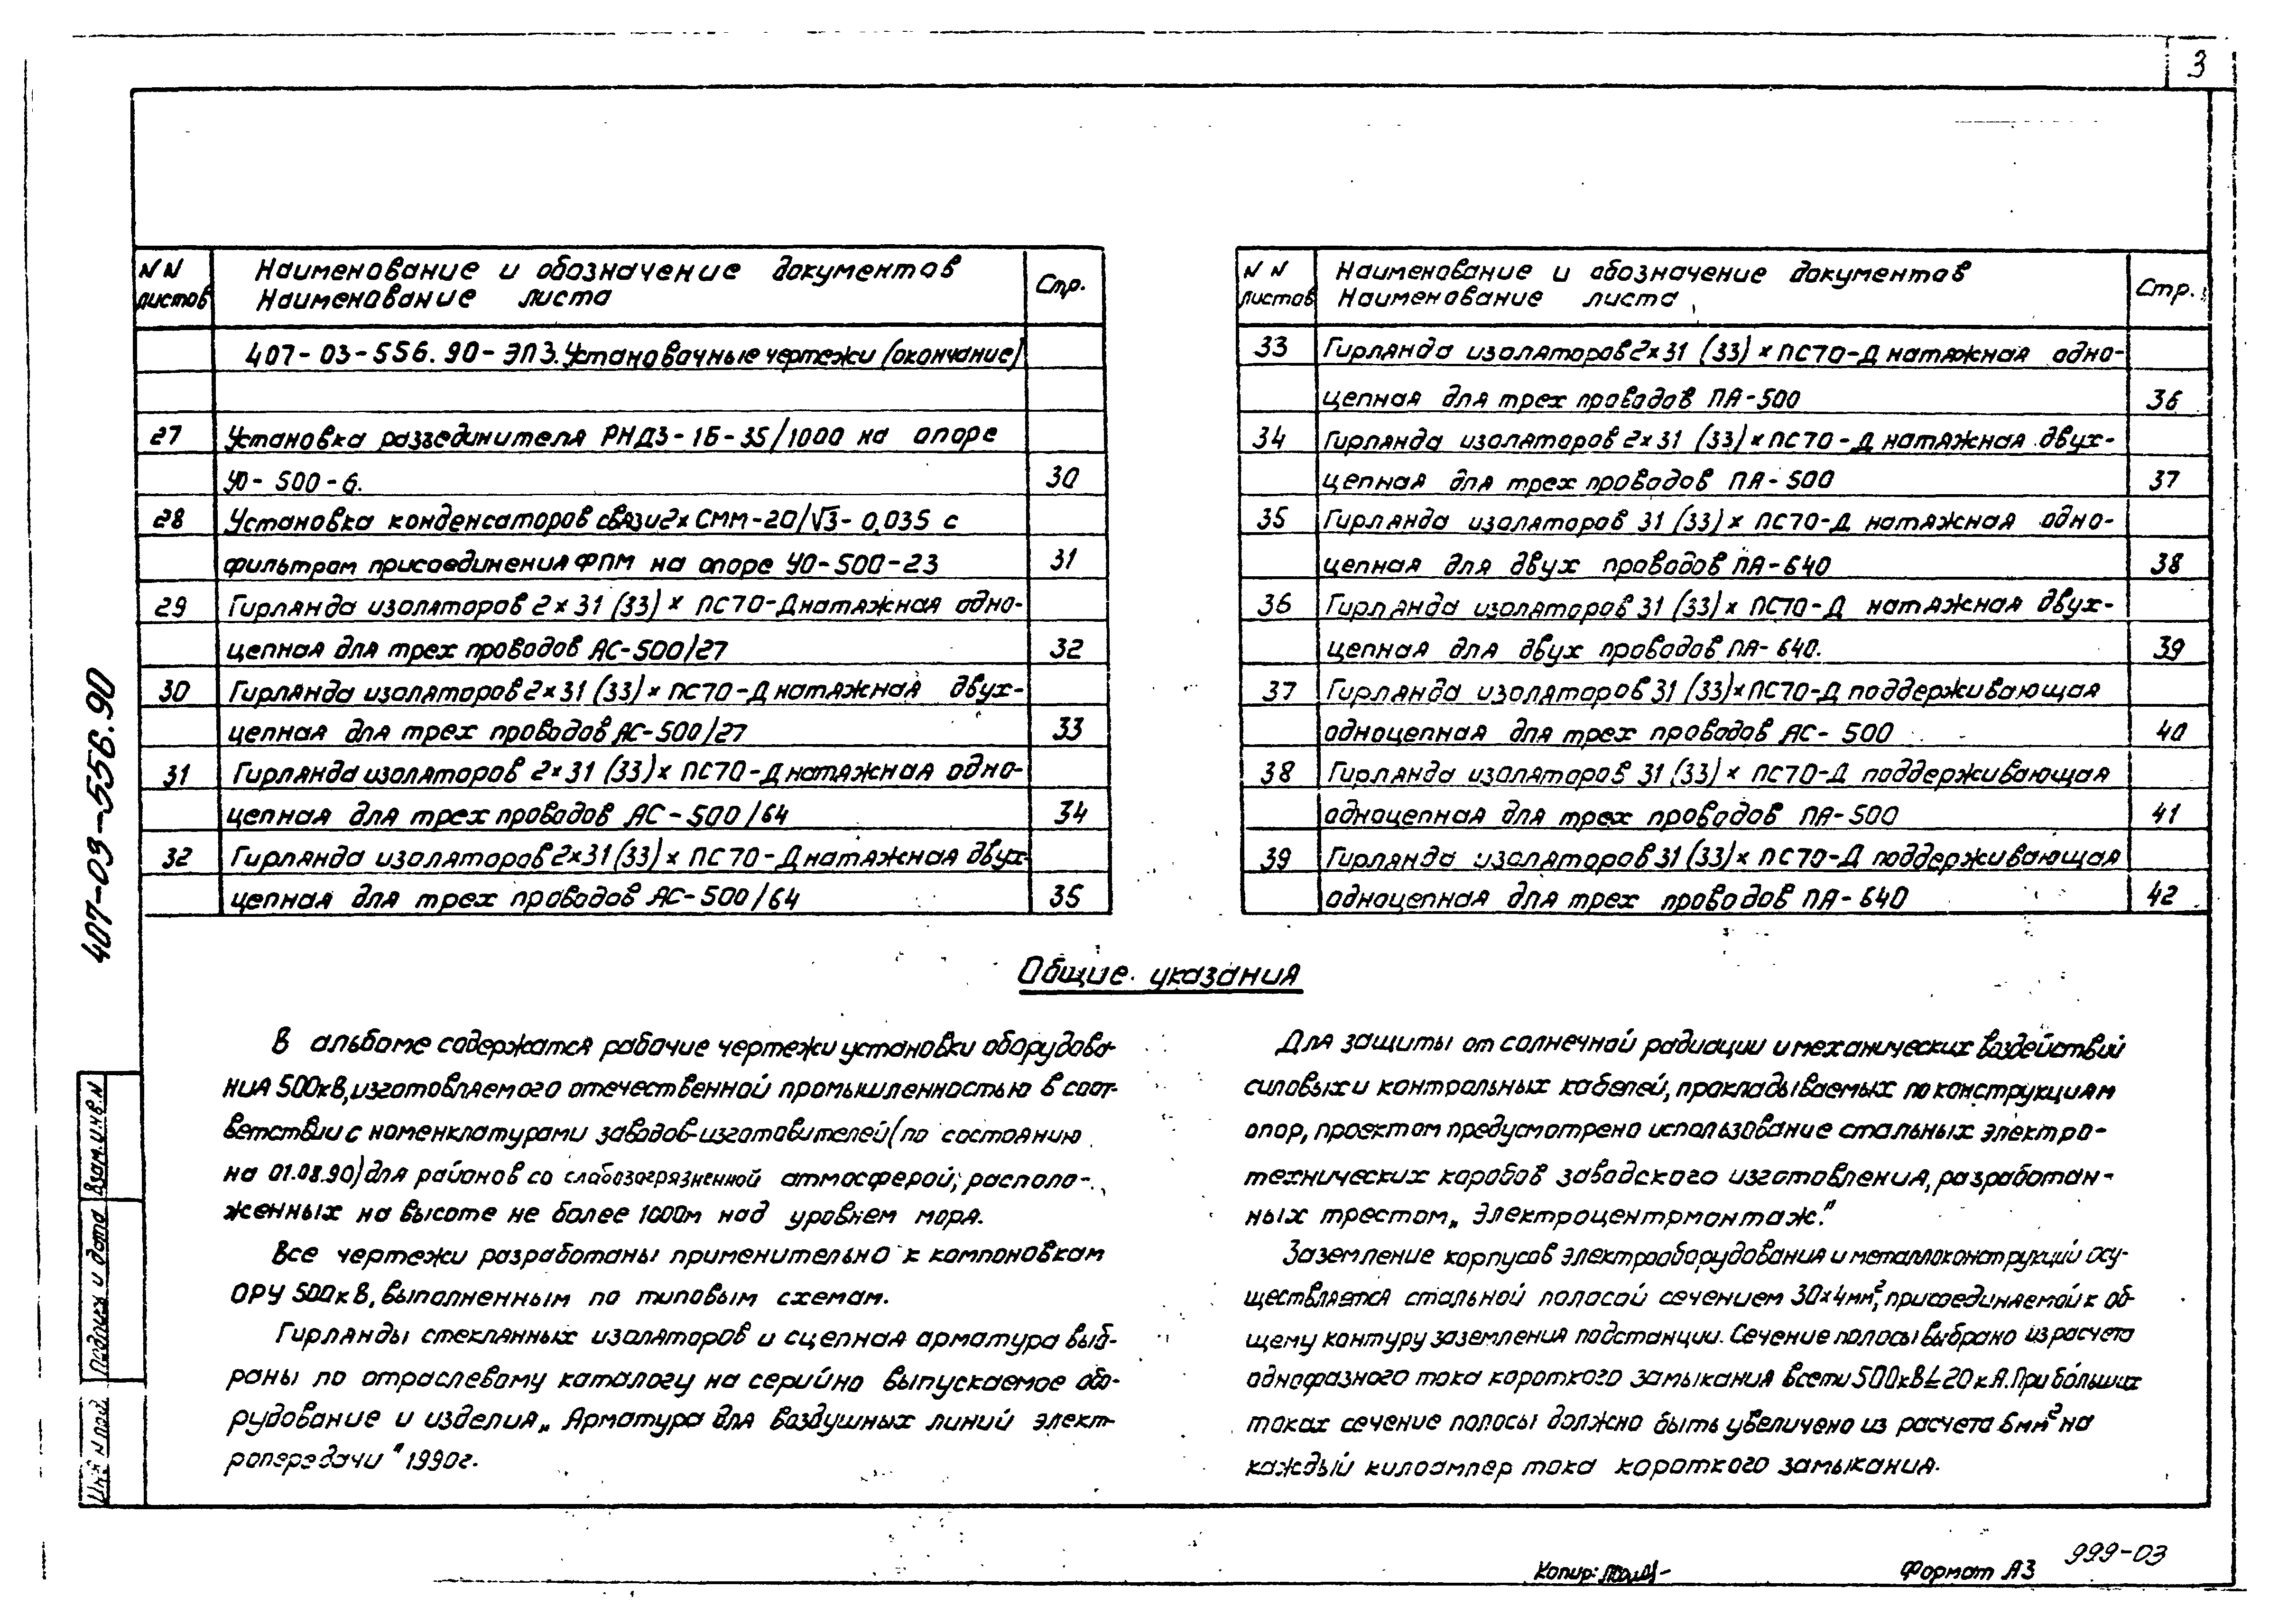 3
NN
листов
Наименование и обозначение документов
Наименование листа
Стр.
407-03-556.90-ЭП3. Установочные чертежи (окончание)
27 Установка разъединителя РНДЗ-1Б-35/1000 на опоре
УО-500-6. 30
28 Установка конденсаторов связи 2х СММ-20/√3-0,035 с
фильтром присоединения ФПМ на опоре УО-500-23 31
29 Гирлянда изоляторов 2х31(33)х ПС70-Д натяжная одно-
цепная для трех проводов АС-500/27 32
30 Гирлянда изоляторов 2х31(33)х ПС70-Д натяжная двух-
цепная для трех проводов АС-500/27 33
31 Гирлянда изоляторов 2х31(33)х ПС70-Д натяжная одно-
цепная для трех проводов АС-500/64 34
32 Гирлянда изоляторов 2х31(33)х ПС70-Д натяжная двух-
цепная для трех проводов АС-500/64 35
NN
листов
Наименование и обозначение документов
Наименование листа
Стр.
33 Гирлянда изоляторов 2х31(33)х ПС70-Д натяжная одно-
цепная для трех проводов ПА-500 36
34 Гирлянда изоляторов 2х31(33)х ПС70-Д натяжная двух-
цепная для трех проводов ПА-500 37
35 Гирлянда изоляторов 31(33)х ПС70-Д натяжная одно-
цепная для двух проводов ПА-640 38
36 Гирлянда изоляторов 31(33)х ПС70-Д натяжная двух-
цепная для двух проводов ПА-640. 39
37 Гирлянда изоляторов 31(33)х ПС70-Д поддерживающая
одноцепная для трех проводов АС-500 40
38 Гирлянда изоляторов 31(33)х ПС70-Д поддерживающая
одноцепная для трех проводов ПА-500 41
39 Гирлянда изоляторов 31(33)х ПС70-Д поддерживающая
одноцепная для трех проводов ПА-640 42
Общие указания
В альбоме содержатся рабочие чертежи установки оборудова-
ния 500кВ, изготовляемого отечественной промышленностью в соот-
ветствии с номенклатурами заводов-изготовителей (по состоянию
на 01.08.90) для районов со слабозагрязненной атмосферой, располо-
женных на высоте не более 1000м над уровнем моря.
Все чертежи разработаны применительно к компоновкам
ОРУ 500кВ, выполненным по типовым схемам.
Гирлянды стеклянных изоляторов и сцепная арматура выб-
раны по отраслевому каталогу на серийно выпускаемое обо-
рудование и изделия „Арматура для воздушных линий элект-
ропередачи" 1990г.
Для защиты от солнечной радиации и механических воздействий
силовых и контрольных кабелей, прокладываемых по конструкциям
опор, проектом предусмотрено использование стальных электро-
технических коробов заводского изготовления, разработан-
ных трестом „Электроцентрмонтаж."
Заземление корпусов электрооборудования и металлоконструкций осу-
ществляется стальной полосой сечением 30х4мм², присоединяемой к об-
щему контуру заземления подстанции. Сечение полосы выбрано из расчета
однофазного тока короткого замыкания в сети 500кВ ≤ 20 кА. При больших
токах сечение полосы должно быть увеличено из расчета 6мм² на
каждый килоампер тока короткого замыкания.
407-03-556.90
Взам. инв. N
Подпись и дата
Инв. N подл.
Копир:
Формат А3
999-03